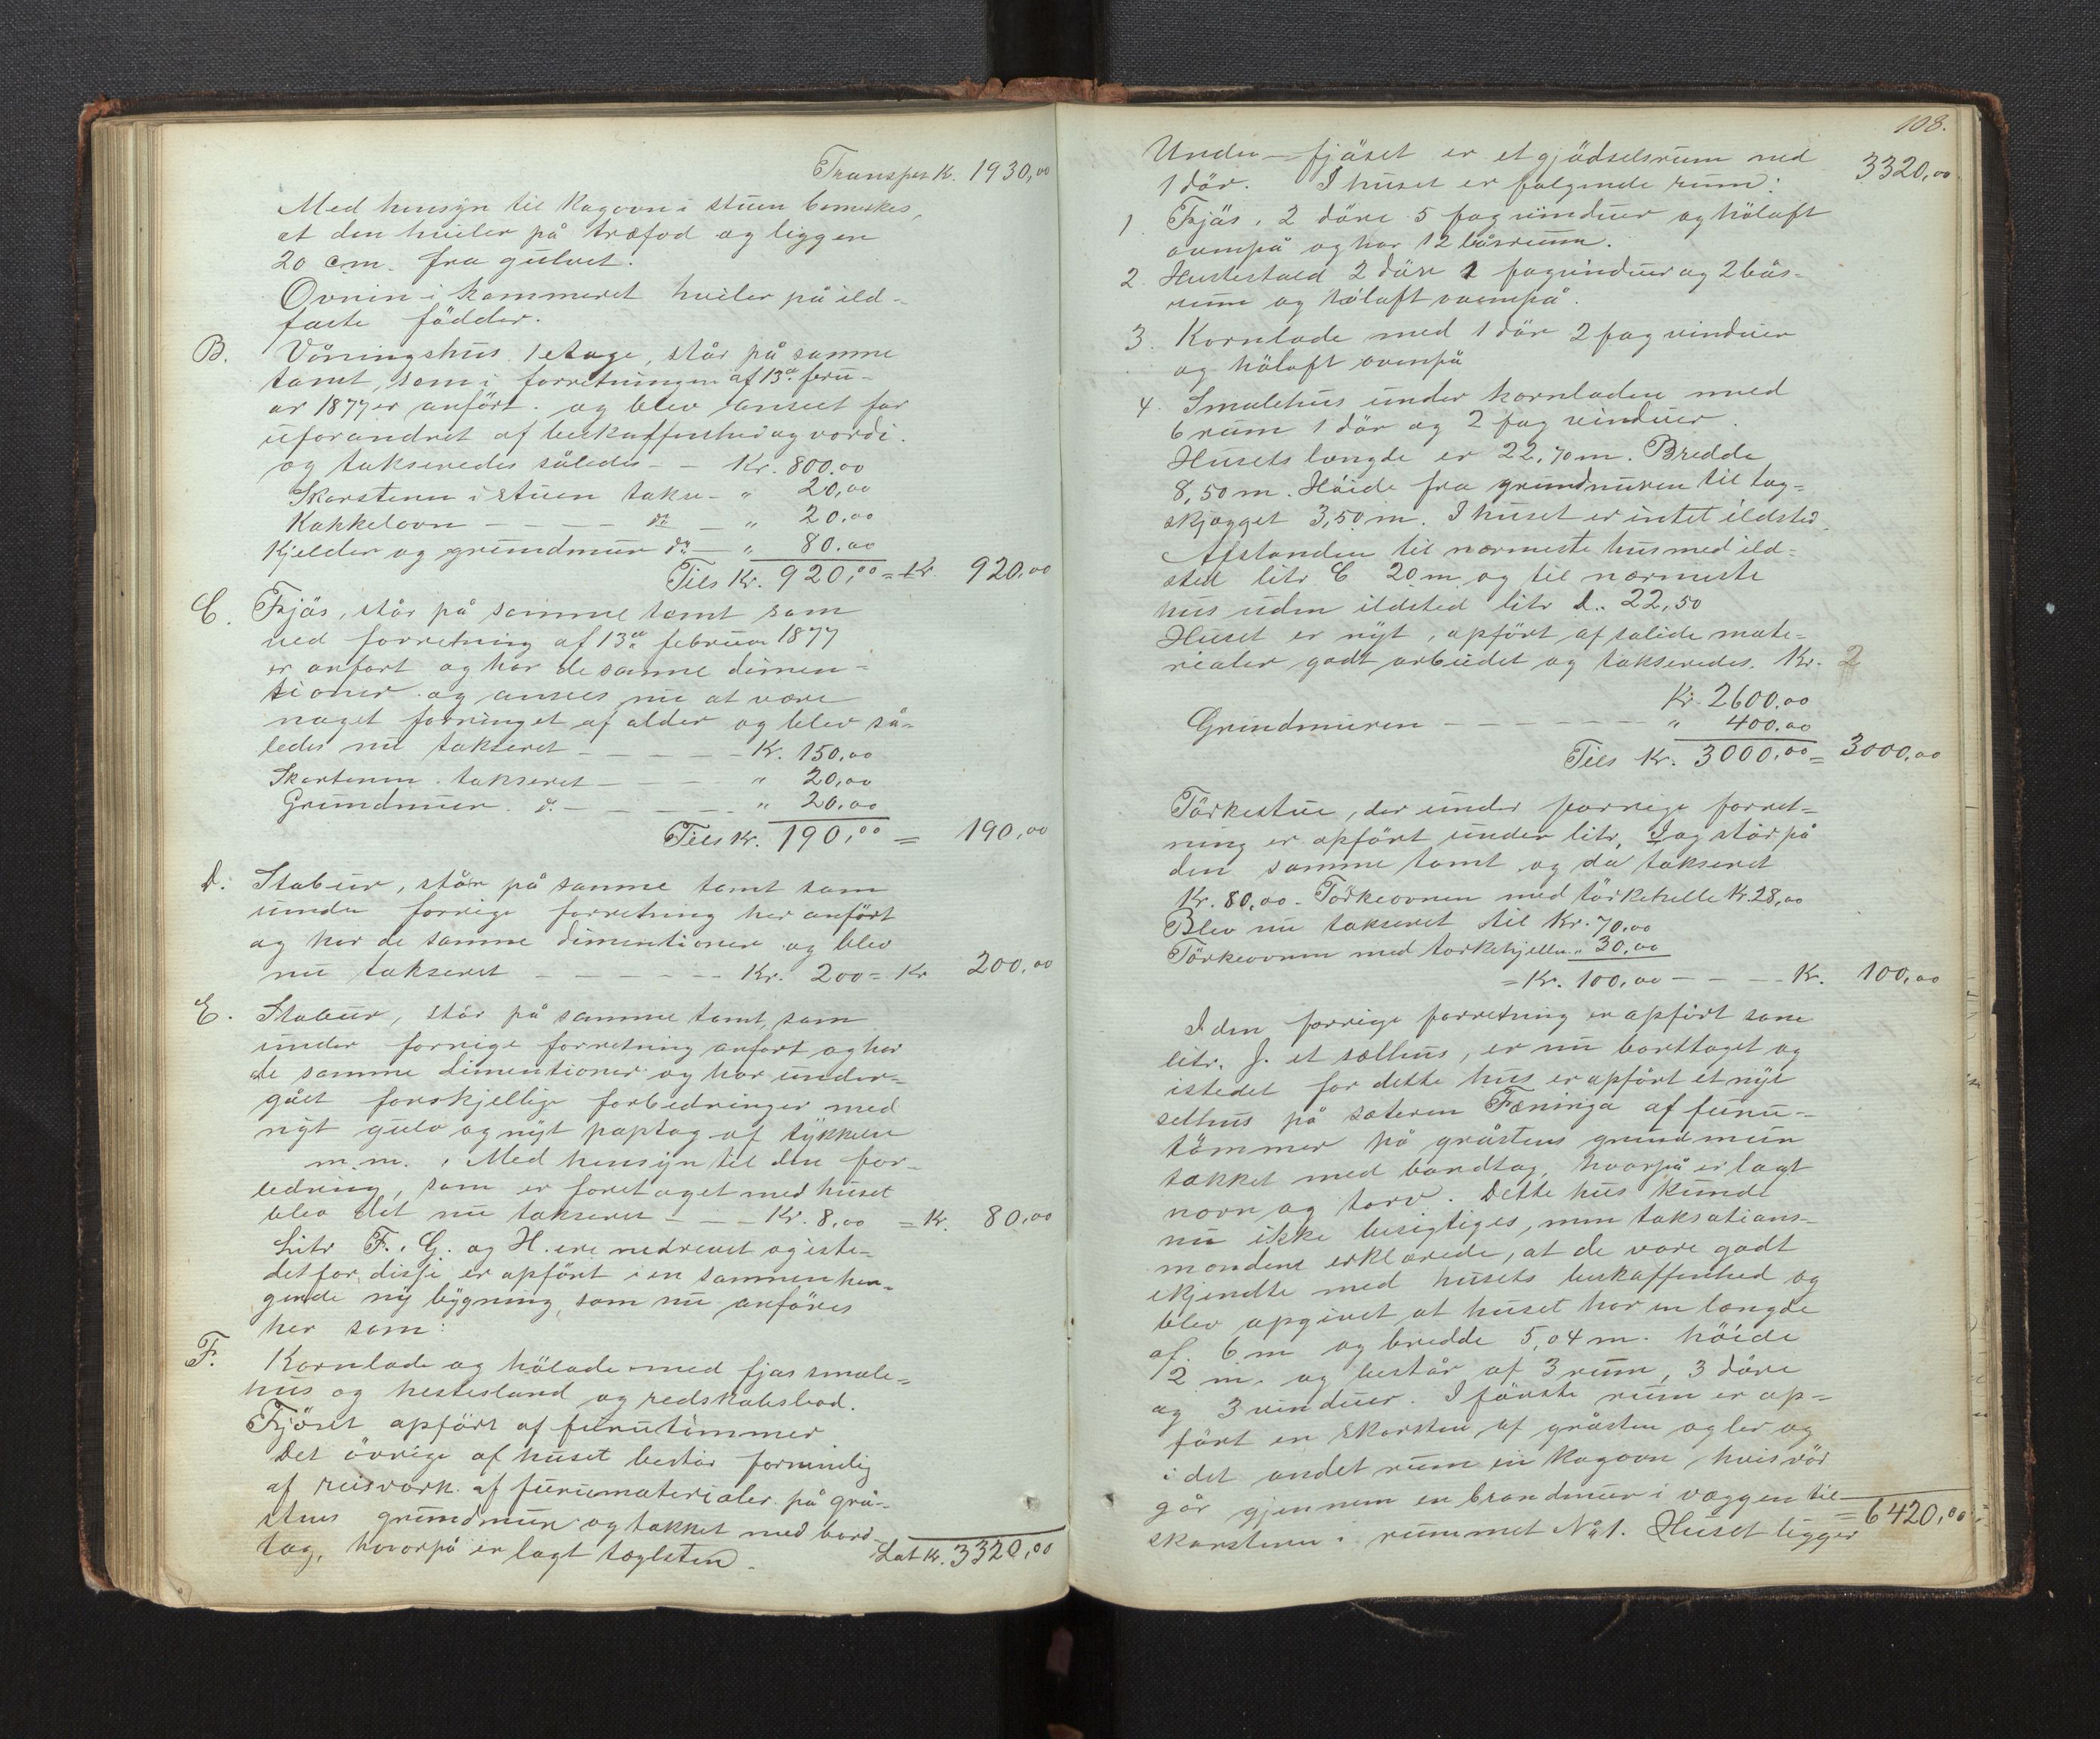 Transpt Kr. 1930,00
Med hensyn til Kogovn i stuen bemerkes,
at den hviler på træfod og ligger
20 cm. fra gulvet.
Ovnen i kammeret hviler på ild-
faste födder.
B. Våningshus 1 etage, står på samme
tomt, som i forretningen af 13de feru-
ar 1877 er anfört. og blev anseet for
uforandret af beskaffenhed og værdi.
og takseredes således - - Kr. 800.00
Skorstenen i stuen takse - " 20,00
Kakkelovn - - - - do - " 20,00
Kjelder og grundmur do - " 80.00
Tils Kr. 920,00 = Kr 920.00
C. Fjös, står på samme tomt som
ved forretning af 13de februar 1877
er anfört og har de samme dimen=
sioner og ansees nu at være
noget forringet af alder og blev så-
ledes nu takseret - - - - Kr. 150,00
Skorstenen takseret - - - " 20,00
Grundmuren do - - - - " 20,00
Tils Kr. 190,00 = 190,00
D. Stabur, står på samme tomt som
under forrige forretning her anfört
og har de samme dimentioner og blev
nu takseret - - - - - - Kr. 200 = Kr 200,00
E. Stabur, står på samme tomt, som
under forrige forretning anfört og har
de samme dimentioner og har under=
gået forskjellige forbedringer med
nyt gulv og nyt paptag af tykkelse
m.m. , Med hensyn til den for-
bedring, som er foretaget med huset
blev det nu takseret - - - Kr. 8,00 = Kr. 80,00
Litr F. G. og H. ere nedrevet og iste-
det for disse er opfört i en sammenhen-
gende ny bygning, som nu anföres
her som:
F. Kornlade og hölade med fjös smale=
hus og hestestand og redskabsbod.
Fjöset opfört af furutömmer
Det övrige af huset består fornemlig
af reisværk af furumaterialer på grå-
stens grundmur og tækket med bord-
tag, hvorpå er lagt taglsten.
Lat Kr. 3320,00
108.
Under fjöset er et gjödselsrum med 3320,00
1 dör. I huset er følgende rum:
1 Fjös, 2 döre 5 fag vinduer og höloft
ovenpå og har 12 båsrum.
2 Hestestald 2 döre 1 fag vinduer og 2 bås-
rum og höloft ovenpå.
3. Kornlade med 1 dör 2 fag vinduer
og höloft ovenpå
4. Smalehus under kornladen med
6 rum 1 dör og 2 fag vinduer.
Husets længde er 22,70 m. Bredde
8,50 m. Höide fra grundmuren til tag=
skjægget 3,50 m. I huset er intet ildsted.
Afstanden til nærmeste hus med ild=
sted litr C 20 m og til nærmeste
hus uden ildsted litr D. 22,50
Huset er nyt, opfört af solide mate=
rialer godt arbeidet og takseredes. Kr. 2
Kr. 2600.00
Grundmuren - - - - - - " 400.00
Tils Kr. 3000,00 = 3000,00
Törkestue, der under forrige forret=
ning er opfört under litr, I og står på
den samme tomt og da takseret
Kr. 80,00 - Törkeovnen med törkehelle Kr. 28,00
Blev nu takseret til Kr. 70.00
Törkeovnen med torkehjeller " 30,00
= Kr. 100,00 - - - Kr. 100,00
I den forrige forretning er opfört som
litr. J. et sælhus, er nu borttaget og
istedet for dette hus er opfört et nyt
selhus på sæteren Fæninga af furu-
tömmer på gråstens grundmur
tækket med bordtag, hvorpå er lagt
nævr og torv. Dette hus kunde
nu ikke besigtiges, men taksations-
mændene erklærede, at de vare godt
kjendte med husets beskaffenhed og
blev opgivet at huset har en længde
af 6 m og bredde 5,04 m. höide
2 m. og består af 3 rum, 3 döre
og 3 vinduer. I förste rum er op=
fört en skorsten af gråsten og ler og
i det andet rum en kogovn, hvis rör
går gjennem en brandmur i væggen til
skorstenen i rummet No 1. Huset ligger = 6420,00